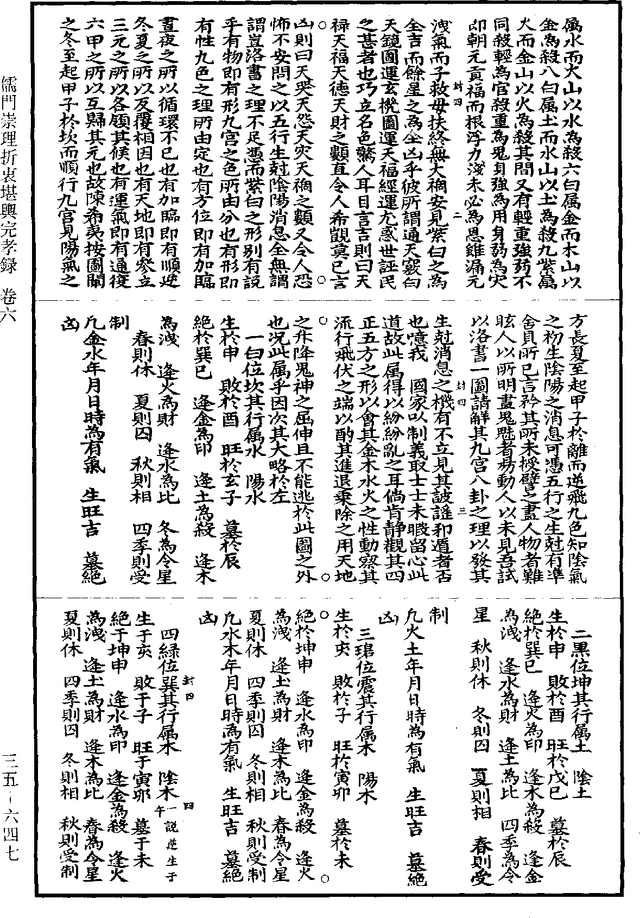 儒門崇理折衷堪輿完孝錄 卷六
三五-六四七
屬水而火山以水為殺六白屬金而木山以
金為殺八白屬土而水山以土為殺九紫屬
火而金山以火為殺其間又有輕重強弱不
同殺輕為官殺重為鬼身強為用身弱為灾
即朝元貢福而根浮力淺未必為恩雖漏元
封四 二
洩氣而子救母扶終無大禍安見紫白之為
全吉而餘星之為全凶乎彼所謂通天竅白
天鏡圖運玄機圖運天福經運尤惑世誣民
之甚者也巧立名色驚人耳目言吉則曰天
祿天福天德天財之顯直令人希覬莫已言
凶則曰天哭天怨天灾天禍之顯又令人恐
怖不安問之以五行生尅陰陽消息全無謂
謂豈洛書之理不足憑而紫白之形别有說
乎有物即有形九宮之色所由分也有形即
有性九色之理所由定也有方位即有加臨
晝夜之所以循環不已也有加臨即有順逆
冬夏之所以反覆相因也有天地即有參立
三元之所以各領其候也有運氣即有通復
六甲之所以互歸其元也故陳希夷按圖闡
之冬至起甲子於坎而順行九宮見陽氣之
方長夏至起甲子於離而逆飛九色知陰氣
之初生陰陽之消息可憑五行之生尅有準
舍員所已言矜其所未授譬之畫人物者難
眩人以所明畫鬼魅者易動人以未見吾試
以洛書一圖請辭其九宮八卦之理以發其
封四 三
生尅消息之機有不立見其詖謠和遁者否
也噫我 國家以制義取士士未暇留心此
道故此属得以紛紛亂之耳倘肯静觀其四
正五方之形以會其金木水火之性動察其
流行飛伏之端以酌其進退乗除之用天地
之升降鬼神之屈伸且不能逃於此圖之外
也况此属乎因次其大略於左
一白位坎其行属水 陽水
生於申 敗於酉 旺於亥子 墓於辰
絕於巽巳 逢金為印 逢土為殺 逢木
為洩 逢火為財 逢水為比 冬為令星
春則休 夏則囚 秋則相 四季則受
制
凢金水年月日時為有氣 生旺吉 墓絕
凶
二黒位坤其行属土 陰土
生於申 敗於酉 旺於戊巳 墓於辰
絕於巽巳 逢火為印 逢木為殺 逢金
為洩 逢水為財 逢土為比 四季為令
星 秋則休 冬則囚 夏則相 春則受
制
凢火土年月日時為有氣 生旺吉 墓絕
凶
三碧位震其行属木 陽木
生於亥 敗於子 旺於寅卯 墓於未
絕於坤申 逢水為印 逢金為殺 逢火
為洩 逢土為財 逢木為比 春為令星
夏則休 四季則囚 冬則相 秋則受制
凢水木年月日時為有氣 生旺吉 墓絕
凶
封四 四
四綠位巽其行属木 陰木 一説逆生于午
生于亥 敗于子 旺于寅卯 墓于未
絕于坤申 逢水為印 逢金為殺 逢火
為洩 逢土為財 逢木為比 春為令星
夏則休 四季則囚 冬則相 秋則受制